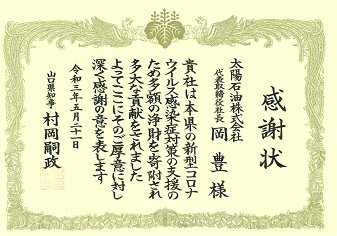 感謝状
太陽石油株式会社
代表取締役社長
岡豊様
貴社は本県の新型コロナ
ウイルス感染症対策の支援の
ため多額の浄財を寄附され
多大な貢献をされました
よってここにそのご厚意に対し
深く感謝の意を表します
令和三年五月二十一日
山口県知事 村岡嗣政